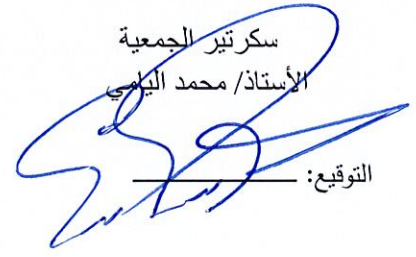 سكرتير الجمعية
الأستاذ/ محمد اليامي
التوقيع: